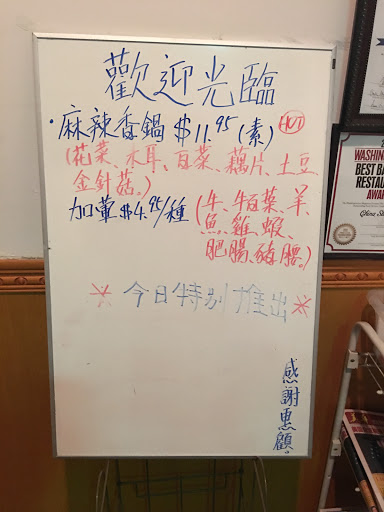 歡迎光臨
·麻辣香鍋 $11.95 (素) HOT
(花菜、木耳、百菜、藕片、土豆
金針菇。)
加葷 $4.95/種 (牛、牛百葉、羊、
魚、雞、蝦、
肥腸、豬腰。)
※今日特別推出※
感謝惠顧。
WASHING
BEST BA
RESTAU
AWAR
China St